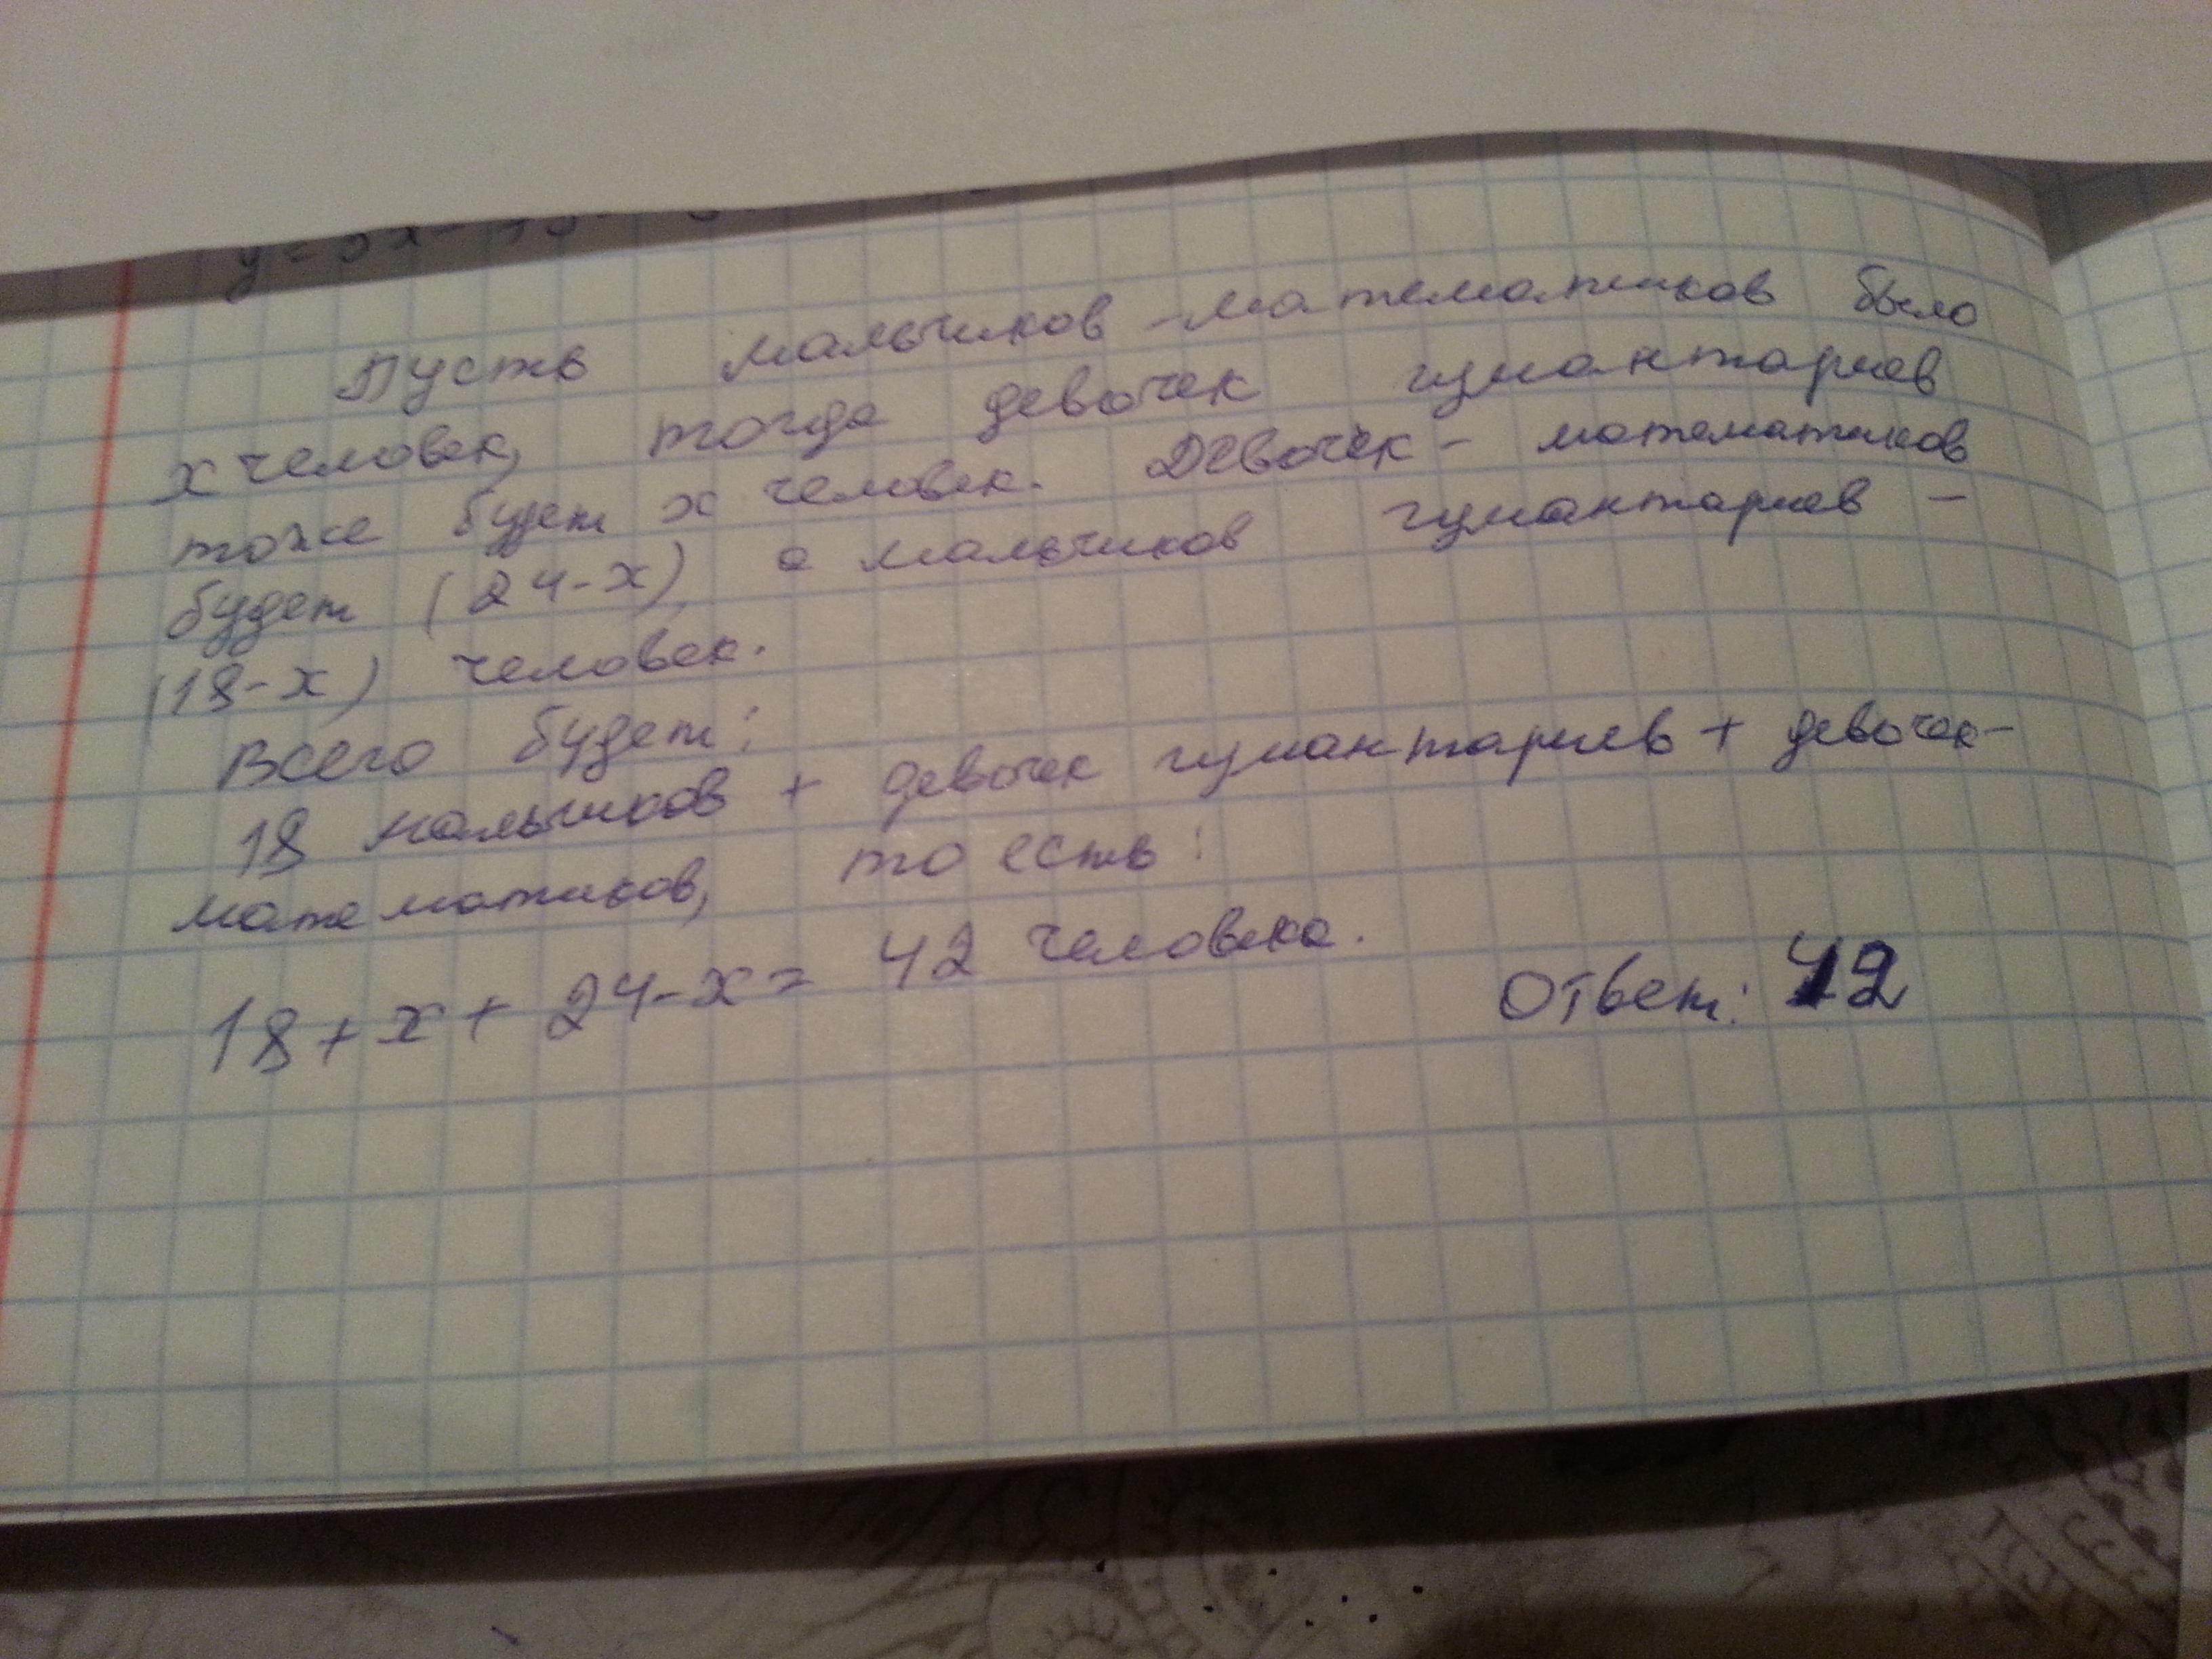 Пусть мальчиков-математиков было
х человек, тогда девочек гумантариев
тоже будет х человек. Девочек - математиков
будет (24-х), а мальчиков гумантариев -
(18-х) человек.
Всего будет:
18 мальчиков + девочек гумантариев + девочек-
математиков, то есть:
18 + х + 24 - х = 42 человека.
Ответ: 42